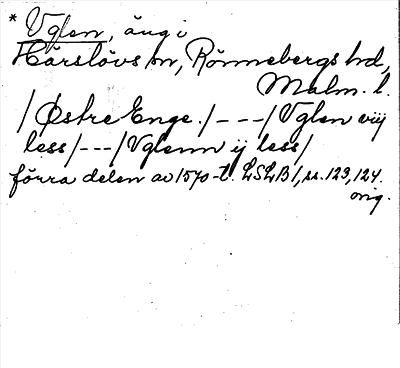 * Vglen, äng i
Härslövs sn, Rönnebergs hd,
Malm. l.
/Østre Enge./---/Vglen viij
less/---/Vglenn ij less/
förra delen av 1570-t. LSLB 1, ss. 123, 124.
orig.